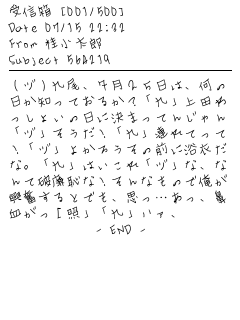 受信箱 [001/500]
Date 07/15 22:32
From 桂小太郎
Subject 564219
(ヅ)九尾、7月25日は、何の
日か知っておるか?「九」上田わ
っしょいの日に決まってんじゃん
「ヅ」そうだ!「九」遂れてって
!「ヅ」よかろうその前に浴衣だ
な。「九」はいこれ「ヅ」な、な
んて破廉恥な!そんなもので俺が
興奮するとでも、思っ…あっ、鼻
血がっ[照」「九」ハァ、
- END -